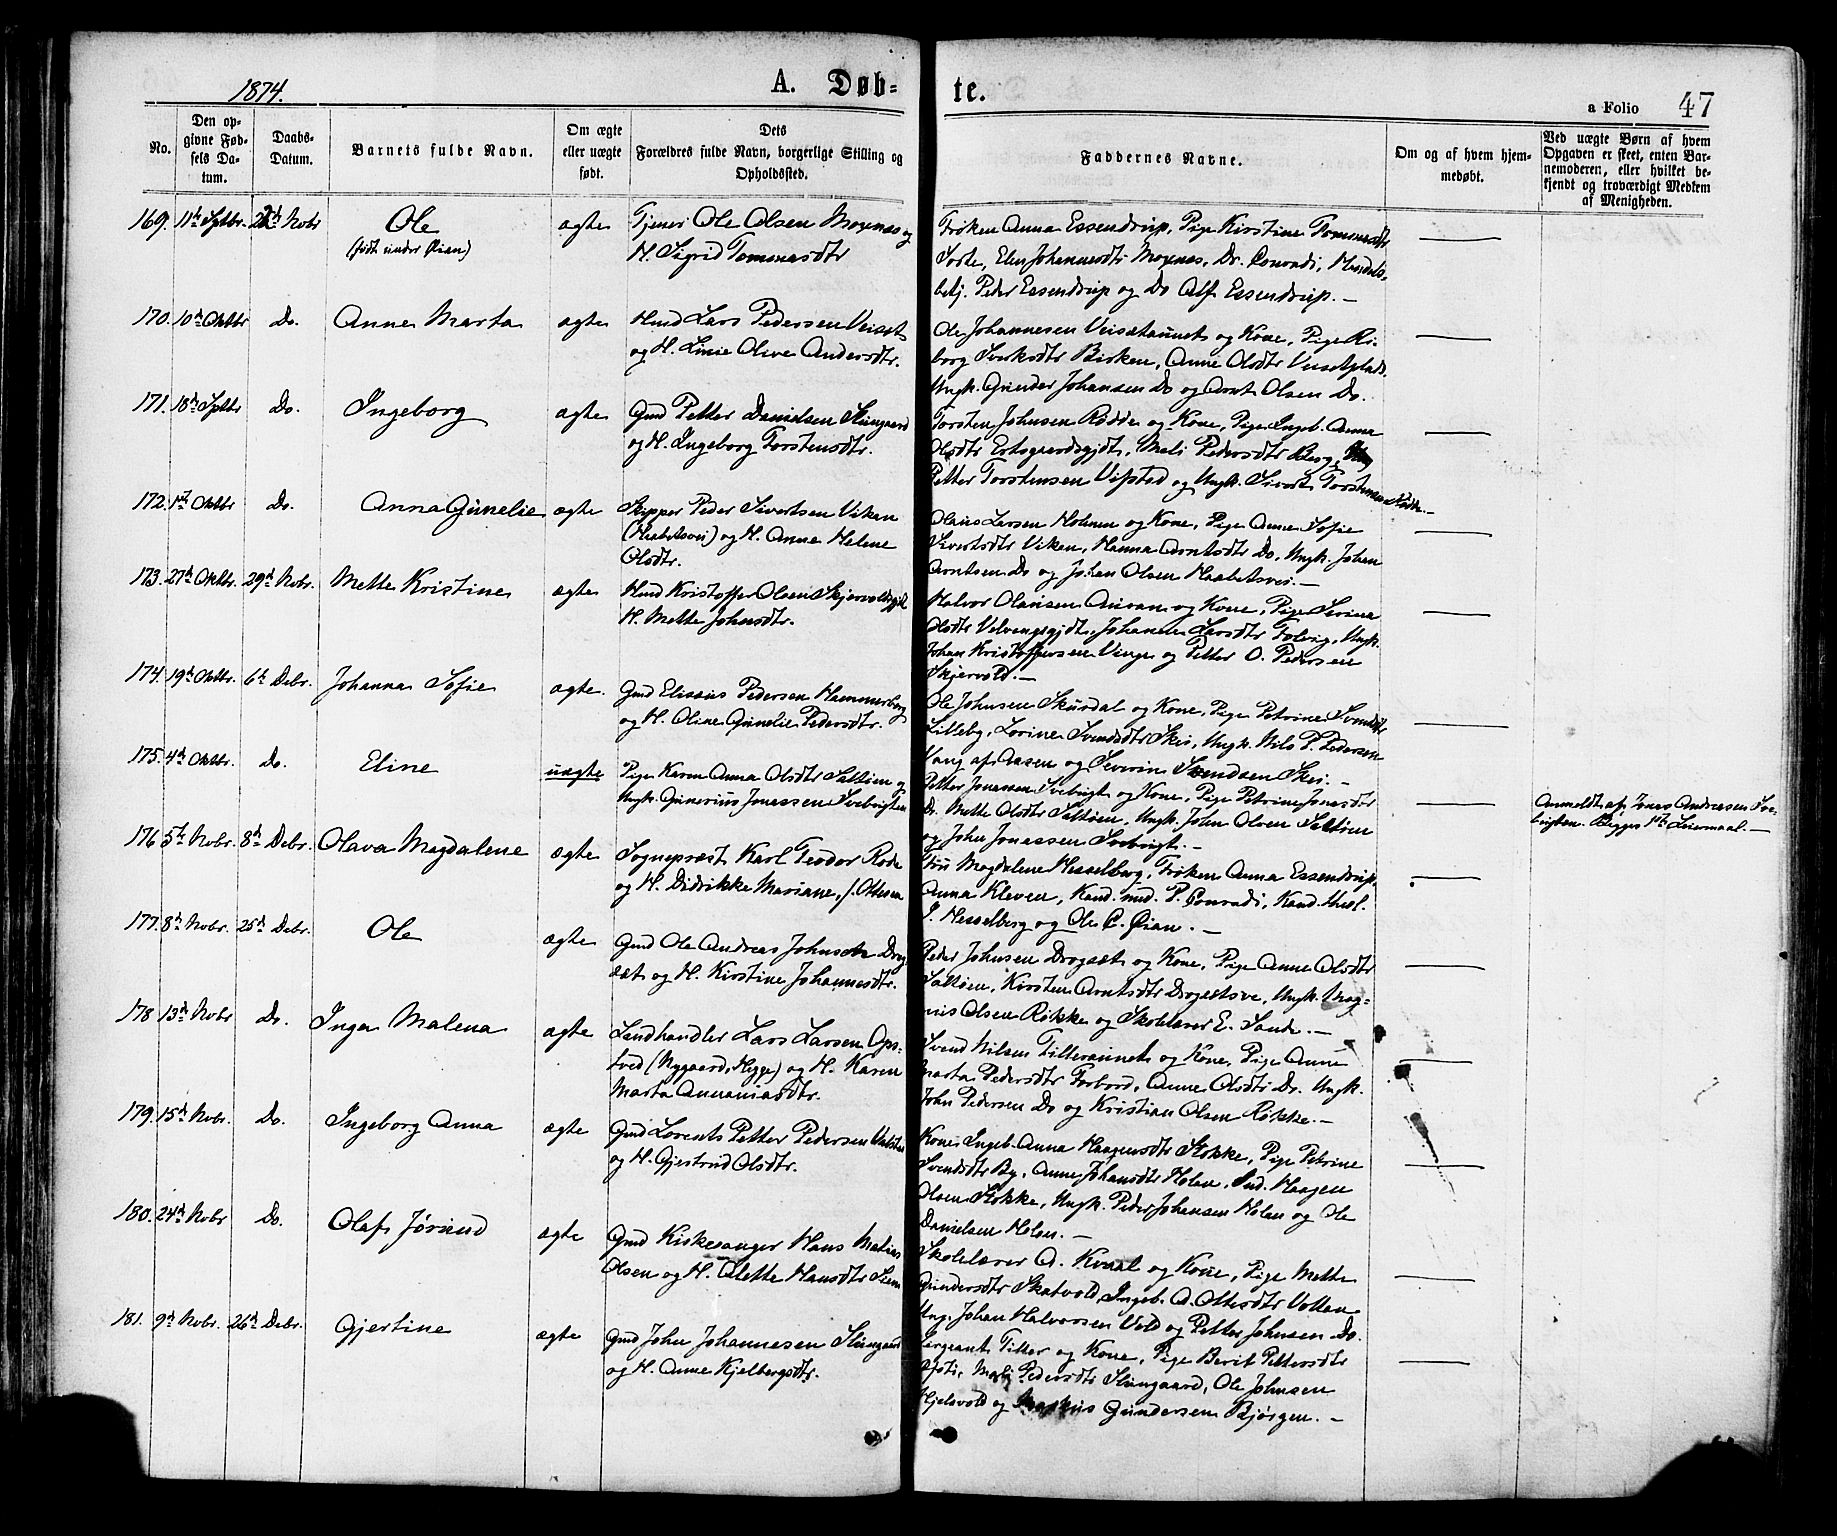 1874.
A. Døb-
te.
a Folio 47
No.
Den op-
givne Fød-
sels Da-
tum.
Daabs-
Datum.
Barnets fulde Navn.
Om ægte
eller uægte
født.
Dets
Forældres fulde Navn, borgerlige Stilling og
Opholdssted.
Faddernes Navne.
Om og af hvem hjem-
medøbt.
Ved uægte Børn af hvem
Opgaven er skeet, enten Bar-
nemoderen, eller hvilket be-
kjendt og troværdigt Medlem
af Menigheden.
169. 11te Sptbr. Novbr
Ole
(født under Øian)
ægte
Tjener Ole Olsen Moxnes og
H. Sigrid Tommasdtr
Frøken Anna Essendrup, Pige Kirstine Tommasdtr
Elen Johannesdtr Moxnes, Dr. Conradi, Handels-
betj. Peder Essendrup og Do Alf Essendrup. —
170. 10de Oktbr Do.
Anne Marta
ægte
Hmd Lars Pedersen Veiset
og H. Linie Olive Andersdtr.
Ole Johannesen Veisetaunet og Kone, Pige Ri-
borg Birken, Anne Olsdtr Veisetplads
Ungk. Gunder Johansen Do og Arnt Olsen Do.
171. 18de Sptbr Do.
Ingeborg
ægte
Gmd Petter Danielsen Slungaard
og H. Ingeborg Torstensdtr.
Torsten Johnsen Rødde og Kone, Pige Ingeb. Anna
Olsdtr Ertsgaardsgjdt, Mali Pedersdtr Berg,
Petter Torstensen Vifstad og Ungk. Sivert Torstensen Rødde. —
172. 1ste Oktbr Do.
Anna Gunelie
ægte
Skipper Peder Sivertsen Viken
(Haabetsvei) og H. Anne Helene
Olsdtr.
Olaus Larsen Holmen og Kone, Pige Anne Sofie
Sivertsdtr Viken, Hanna Arntsdtr Do, Ungk. Johan
Arntsen Do og Johan Olsen Haabetsvei. —
173. 27de Oktbr. 29de Novbr.
Mette Kristine
ægte
Hmd Kristoffer Olsen Skjervoldsgjd
H. Mette Johnsdtr.
Halvor Olausen Auran og Kone, Pige Serina
Olsdtr Velvangsgjdt, Johanna Larsdtr Folvig, Ungk.
Johan Kristoffersen Vinge og Petter O. Pedersen
Skjervold. —
174. 19de Oktbr. 6te Debr.
Johanna Sofie
ægte.
Gmd Elisæus Pedersen Hammerberg
og H. Oline Gunelie Pedersdtr.
Ole Johnsen Skurdal og Kone, Pige Petrine Svendsdtr
Lilleby, Lorine Svendsdtr Skei, Ungk. Nils P. Pedersen
Vang af Aasen og Severin Svendsen Skei. —
175. 4de Oktbr. Do.
Eline
uægte
Pige Karen Anna Olsdtr Saltøien og
Ungk. Gunerius Jonassen Svebrigten
Petter Jonassen Svebrigt og Kone, Pige Petrine Jonasdtr
Do. Mette Olsdtr Saltøien, Ungk. John Olsen Saltøien
og John Jonassen Svebrigt. —
Anmeldt af Jonas Andreasen Sve-
brigten. Begges 1ste Leiermaal. —
176 5te Novbr. 8de Debr.
Olava Magdalene
ægte
Sognepræst Karl Teodor Rode
og H. Didrikke Mariane, f. Ottesen
Fru Magdalene Hesselberg, Frøken Anna Essendrup,
Anna Kleven, Kand. med. P. Conradi, Kand. theol.
J. Hesselberg og Ole C. Øian. —
177. 8de Novbr. 25de Debr.
Ole
ægte
Gmd Ole Andreas Johnsen Drog-
sæt og H. Kirstine Johannesdtr.
Peder Johnsen Drogsæt og Kone, Pige Anne Olsdtr
Saltøien, Kirsten Arntsdtr Drogsetsve, Ungk. Mag-
nus Olsen Røkke og Skolelærer E. Sande. —
178 13de Novbr Do.
Inga Malena
ægte
Landhandler Lars Larsen Ops-
tved (Nygaard, Hegge) og H. Karen
Marta Annaniasdtr.
Svend Nilsen Tilleraunet og Kone, Pige Anne
Marta Pedersdtr Forbord, Anne Olsdtr Do. Ungk.
John Pedersen Do og Kristian Olsen Røkke. —
179. 15de Novbr. Do.
Ingeborg Anna
ægte
Gmd Lorents Petter Pedersen
og H. Gjertrud Olsdtr.
Kone Ingeb. Anna Haagensdtr Stokke, Pige Petrine
Svendsdtr By, Anne Johansdtr Holan, Haagen
Olsen Stokke, Ungk. Peder Johansen Holan og Ole
Danielsen Holan. —
180. 24de Novbr Do.
Olaf Jørund
ægte
Gmd Kirkesanger Hans Matias
Olsen og H. Olette Hansdtr
Skolelærer A. Kvaal og Kone, Pige Mette
Gundersdtr Skatvold, Ingeb. A. Ottesdtr Vollan
Ung. Johan Halvorsen Vold og Petter Johnsen Do.
181. 9de Novbr. 26de Debr.
Gjertine
ægte
Gmd John Johannesen Slungaard
og H. Anne Kjelbergsdtr.
Sergeant Titter og Kone, Pige Berit Pettersdtr
Mali Pedersdtr Slungaard, Ole Johnsen
Hjelsvold og Markus Gundersen Bjørgen. —